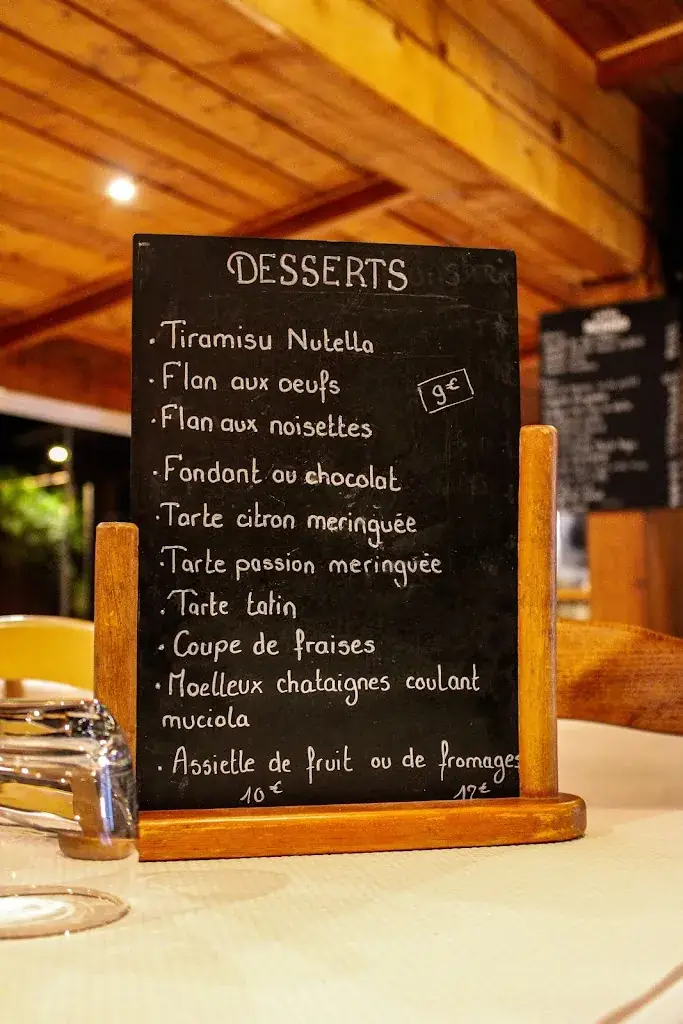 DESSERTS
· Tiramisu Nutella
· Flan aux oeufs
9€
· Flan aux noisettes
· Fondant au chocolat
· Tarte citron meringuée
· Tarte passion meringuée
· Tarte tatin
· Coupe de fraises
· Moelleux chataignes coulant
muciola
· Assiette de fruit ou de fromages
10€ 12€